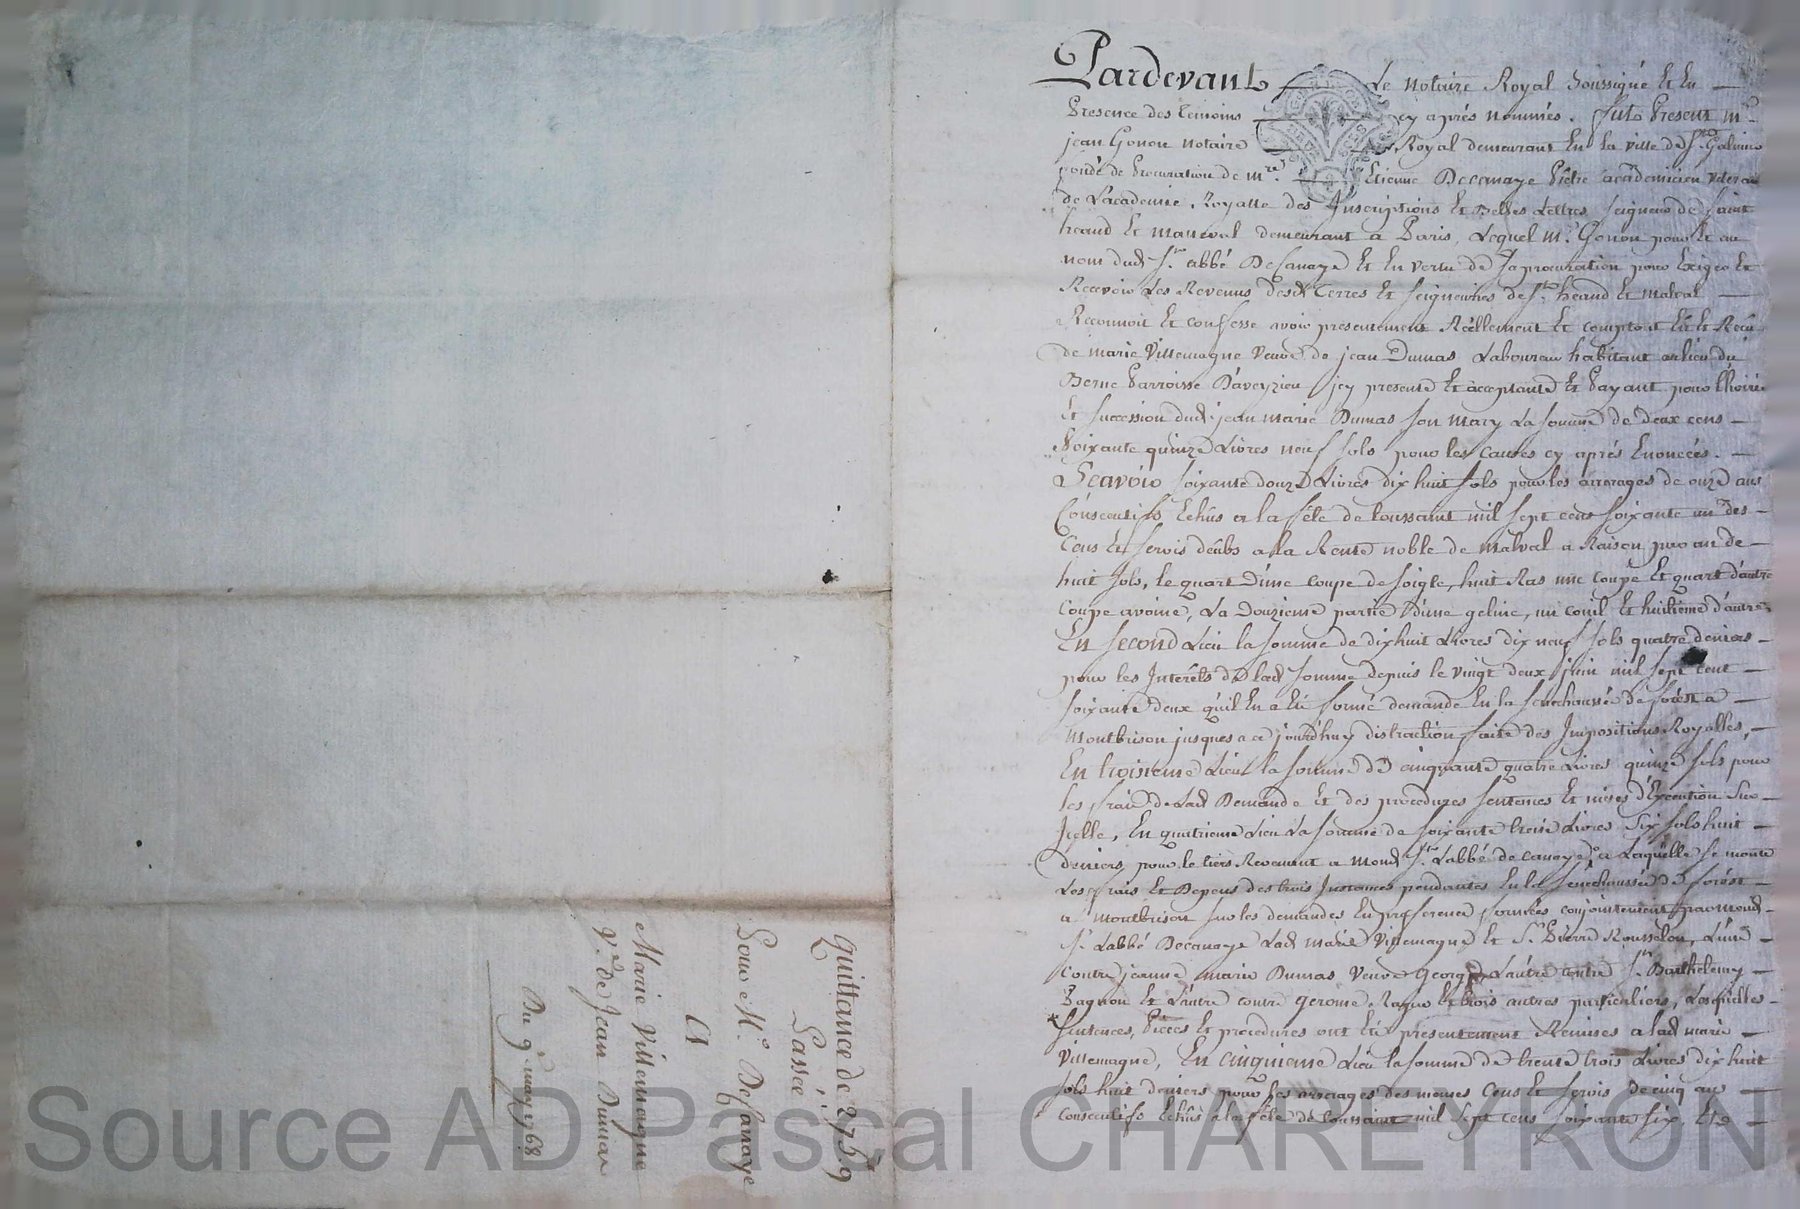 Pardevant Le notaire Royal Soussigné Et En
Presence des temoins cy aprés nommés. fut Present mr.
jean Gonon notaire Royal demeurant En la ville de St. Galmier
fondé de Procuration de mre. Etienne Decanaye Prêtre academicien veteran
de L'academie Royalle des Inscriptions Et Belles Lettres seigneur de saint
heand Et malleval demeurant a Paris, Lequel mr. Gonon pour Et au
nom dud. Sr. abbé Decanaye Et En vertu de sa procuration pour Exiger Et
Recevoir Les Revenus desd. Terres Et seigneuries de St. heand Et malval
Reconnoit Et confesse avoir presentement Réellement Et comptant Eü Et Reçu
de marie villemagne veuve de jean Dumas Laboureur habitant au lieu du
Berne Parroisse D'aveyzieu jcy presente Et acceptante Et Payant pour L'hoirie
Et succession dud. jean marie Dumas son mary La somme de deux cens
soixante quinze Livres neuf sols pour les causes cy aprés Enoncées.
Scavoir soixante douze Livres dix huit sols pour les arrerages de onze ans
Consecutifs Echûs a la fête de toussaint mil sept cens soixante un des
Cens Et servis deûbs a la Rente noble de malval a Raison par an de
huit sols, le quart d'une coupe de soigle, huit Ras une coupe Et quart d'autre
coupe avoine, La Douzieme partie d'une geline, un couil Et huitieme d'autre,
En second Lieu la somme de dix huit Livres dix neuf sols quatre deniers
pour les Interêts de lad. somme depuis le vingt deux juin mil sept cent
soixante deux qu'il En a Eté formé demande En la senechaussée de forest a
montbrison jusques a ce jourd'huy distraction faite des Impositions Royalles,
En troisieme Lieu la somme de cinquante quatre Livres quinze sols pour
les frais de Lad. Demande Et des procedures sentences Et mises d'Execution sur
Jcelle, En quatrieme Lieu La somme de soixante trois Livres six sols huit
deniers pour le tiers Revenant a mond. Sr. L'abbé de canaye a Laquelle se monte
Les frais Et Depens des trois Instances pendantes En la senechaussée de forest
a montbrison sur les demandes En preference formées conjointement par mond.
Sr. L'abbé Decanaye Lad. marie villemagne Et Sr. Pierre Rousselon, L'une
Contre jeanne marie Dumas veuve George L'autre contre Sr. Barthelemy
Pagnon Et L'autre contre gerome Et trois autres particuliers, Lesquelles
sentences, Pieces Et procedures ont Eté presentement Remises a lad. marie
villemagne, En cinquieme Lieu la somme de trente trois Livres dix huit
sols huit deniers pour les arrerages des memes Cens Et servis de cinq ans
consecutifs Echûs a la fête de toussaint mil sept cens soixante six, Et de
Quittance de 275.tt 9
Passée
Pour Mr. Decanaye
a
Marie Villemagne
Ve. de Jean Dumas
Du 9e. may 1768
Source AD Pascal CHAREYRON